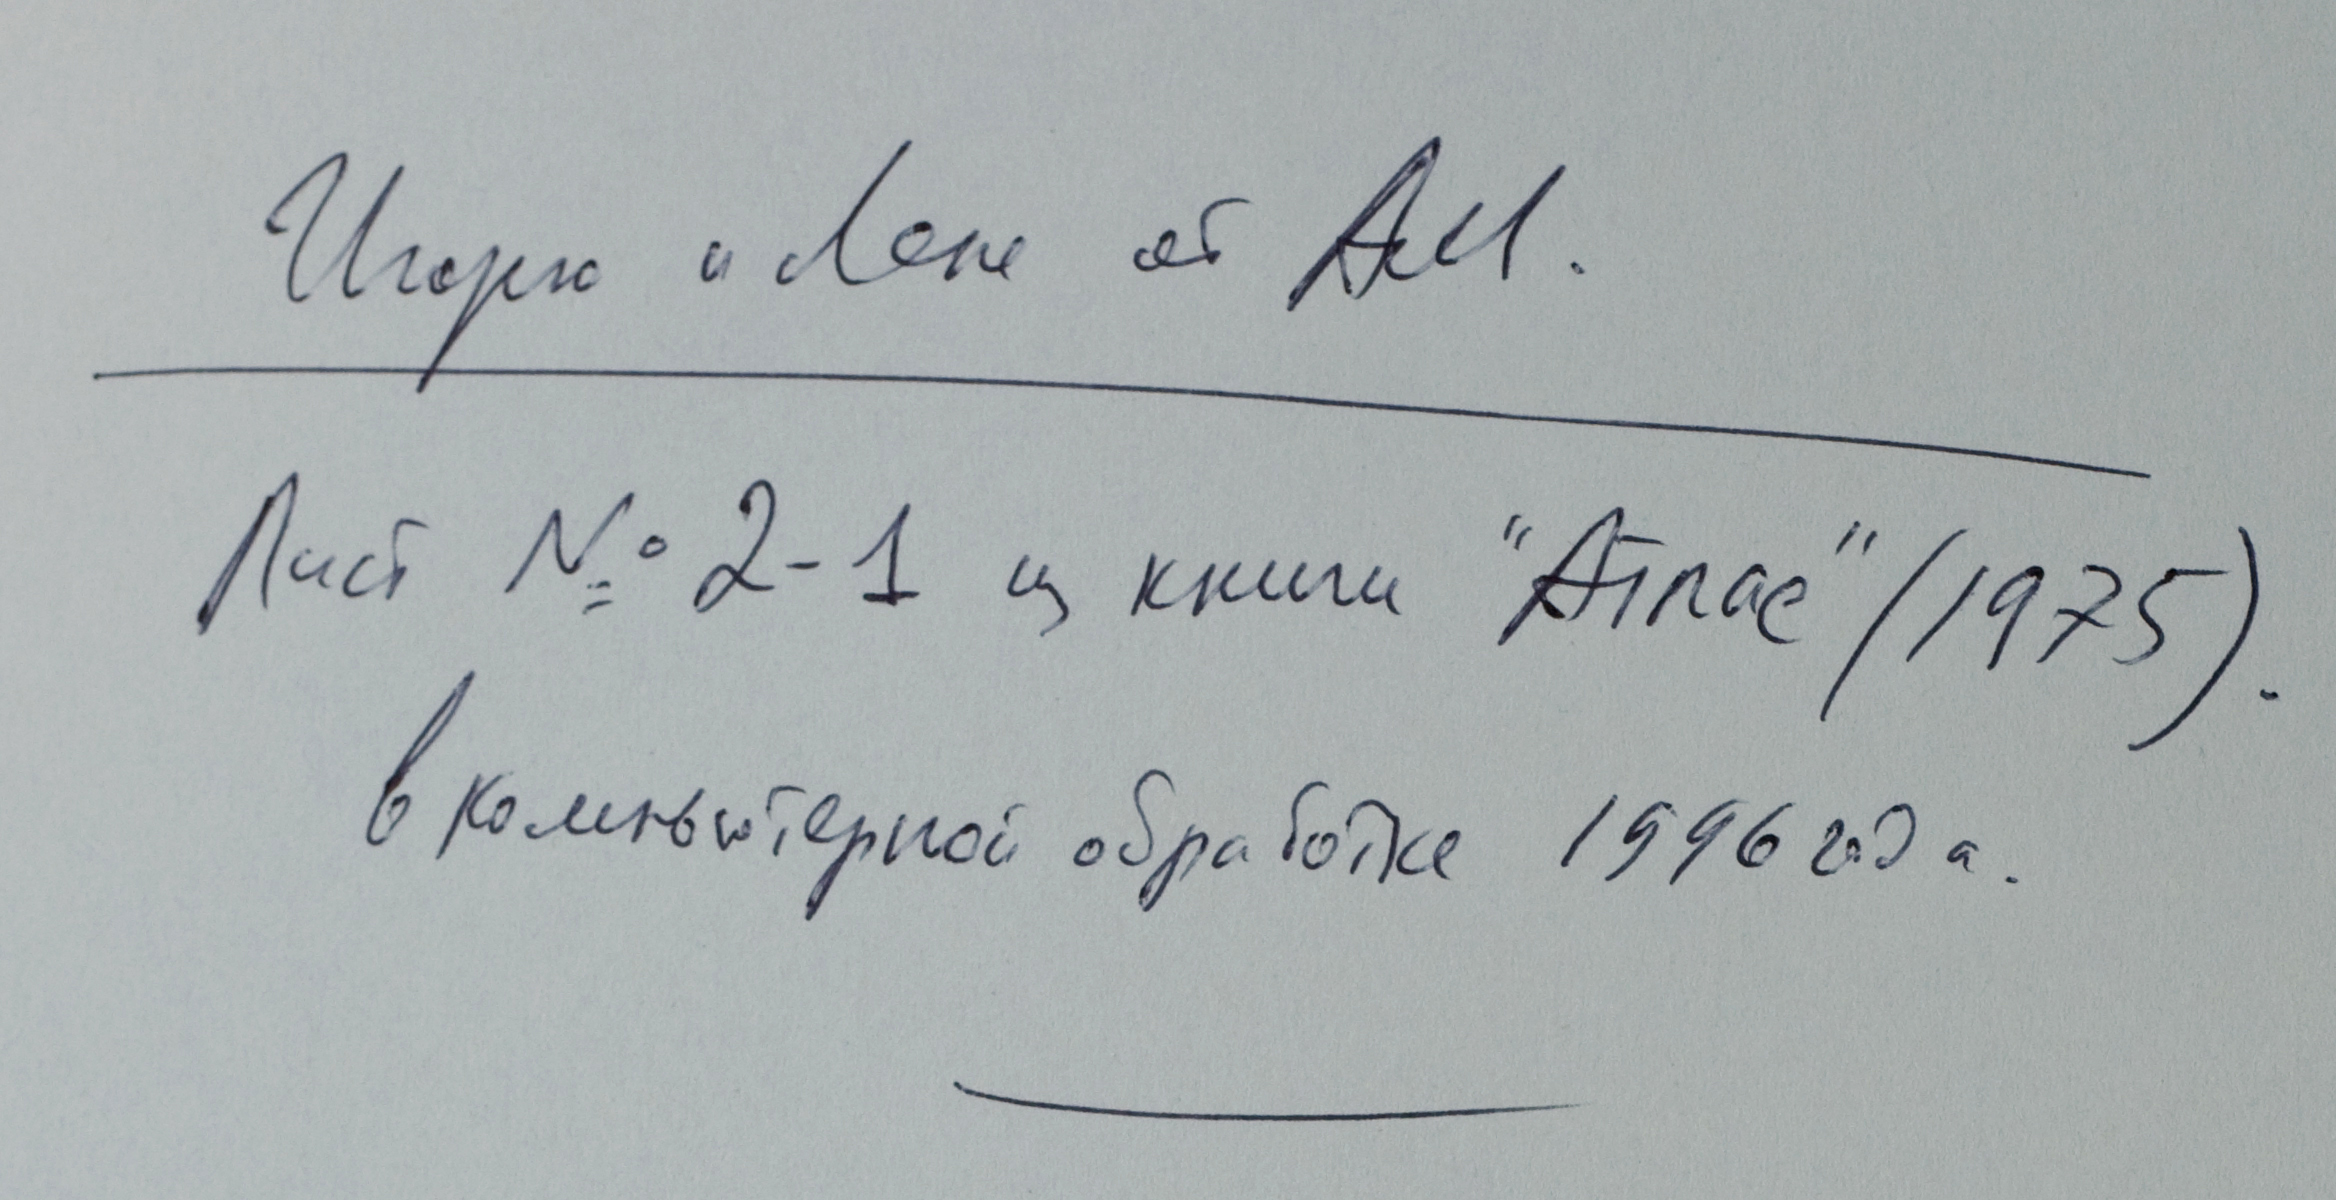 Игорю и Лене от АМ.
Лист № 2-1 из книги "Атлас" (1975).
в компьютерной обработке 1996 года.